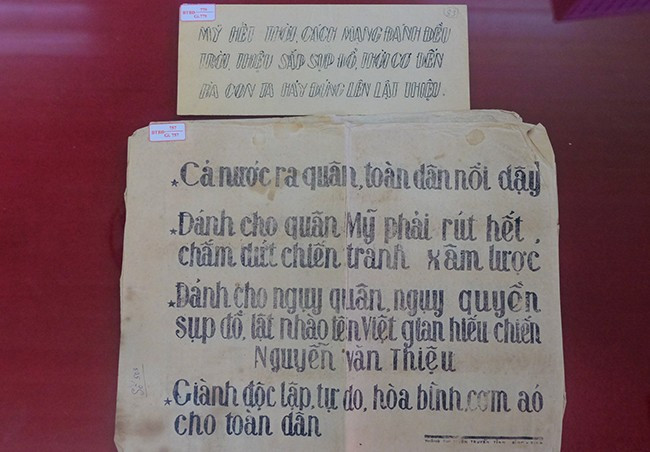 MỸ HẾT THỜI, CÁCH MẠNG ĐÁNH ĐỀU
TRỜI, THIỆU SẮP SỤP ĐỔ, THỜI CƠ ĐẾN
BÀ CON TA HÃY ĐỨNG LÊN LẬT THIỆU.
★ Cả nước ra quân, toàn dân nổi dậy
★ Đánh cho quân Mỹ phải rút hết,
chấm dứt chiến tranh xâm lược
★ Đánh cho ngụy quân, ngụy quyền
sụp đổ, lật nhào tên Việt gian hiếu chiến
Nguyễn Văn Thiệu
★ Giành độc lập, tự do, hòa bình, cơm áo
cho toàn dân